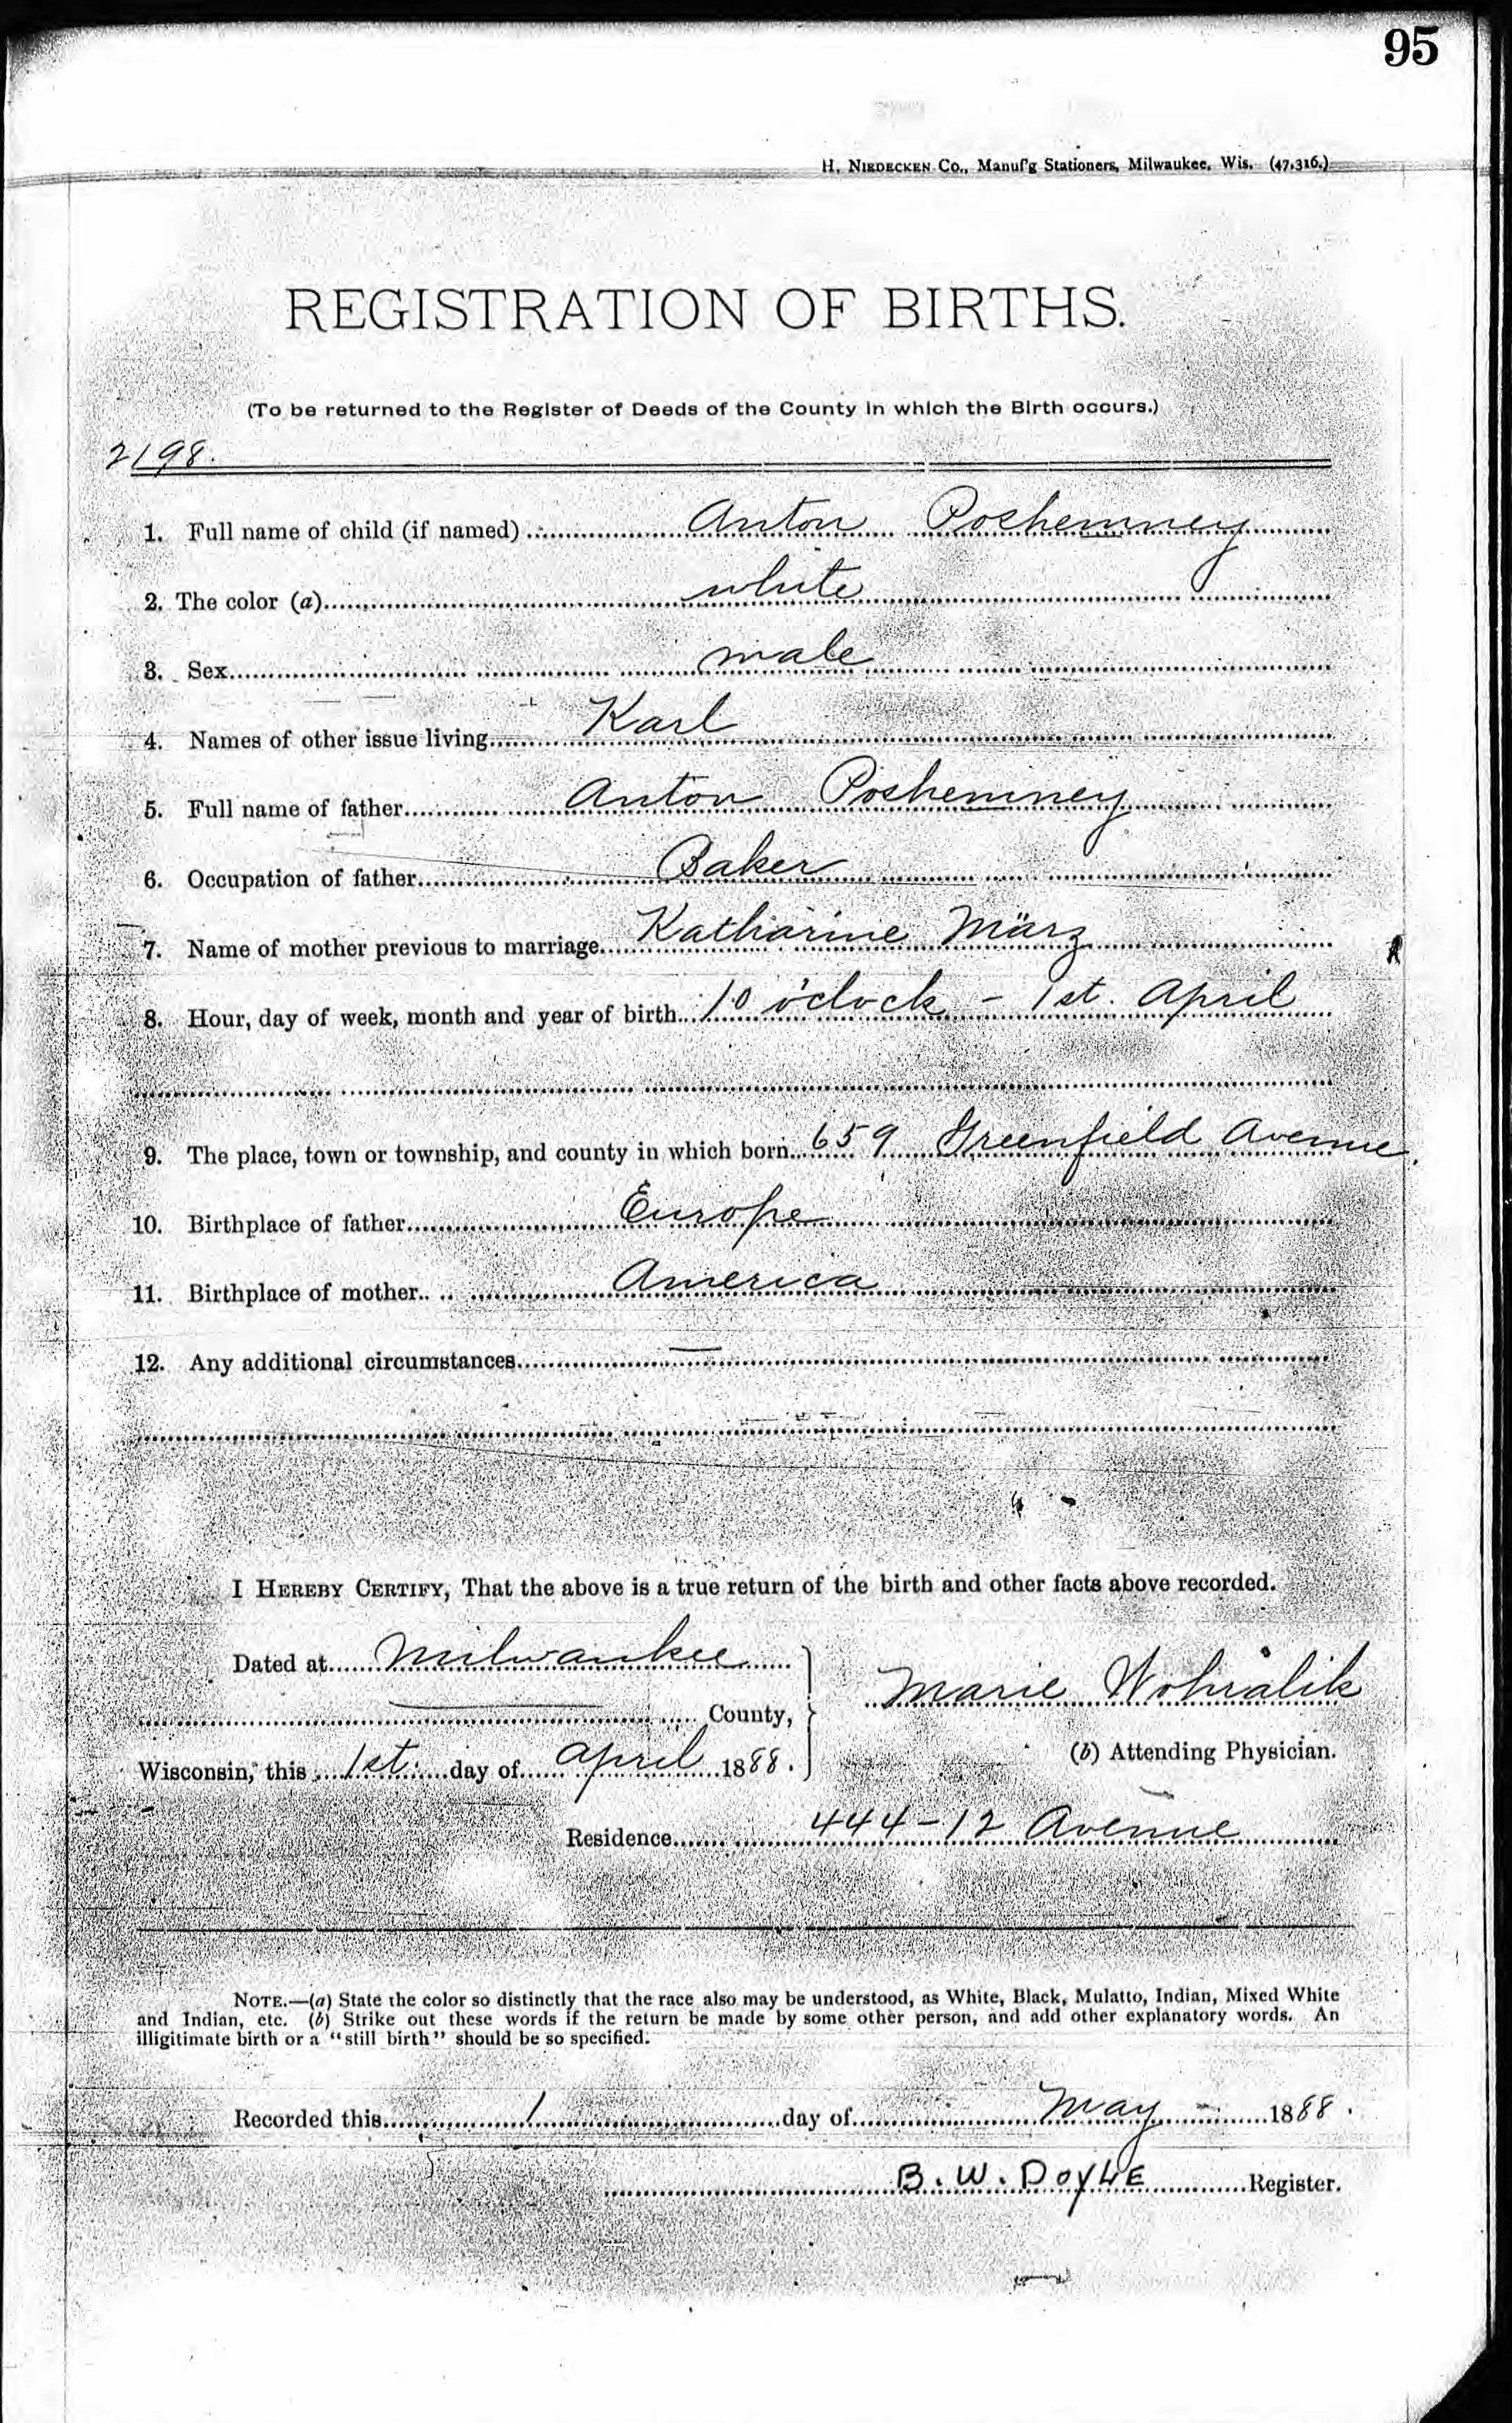 95
H. NIEDECKEN Co., Manuf'g Stationers, Milwaukee, Wis. (47,316.)
REGISTRATION OF BIRTHS.
(To be returned to the Register of Deeds of the County in which the Birth occurs.)
2198.
1. Full name of child (if named) Anton Poshemney
2. The color (a) white
3. Sex male
4. Names of other issue living Karl
5. Full name of father Anton Poshemney
6. Occupation of father Baker
7. Name of mother previous to marriage Katharine März
8. Hour, day of week, month and year of birth 10 o'clock - 1st. April
9. The place, town or township, and county in which born 659 Greenfield Avenue.
10. Birthplace of father Europe
11. Birthplace of mother America
12. Any additional circumstances —
I HEREBY CERTIFY, That the above is a true return of the birth and other facts above recorded.
Dated at Milwaukee
Marie Wohralik
County,
(b) Attending Physician.
Wisconsin, this 1st. day of April 1888.
Residence 444-12 Avenue
NOTE.—(a) State the color so distinctly that the race also may be understood, as White, Black, Mulatto, Indian, Mixed White
and Indian, etc. (b) Strike out these words if the return be made by some other person, and add other explanatory words. An
illigitimate birth or a "still birth" should be so specified.
Recorded this 1 day of May 1888.
B. W. DOYLE Register.